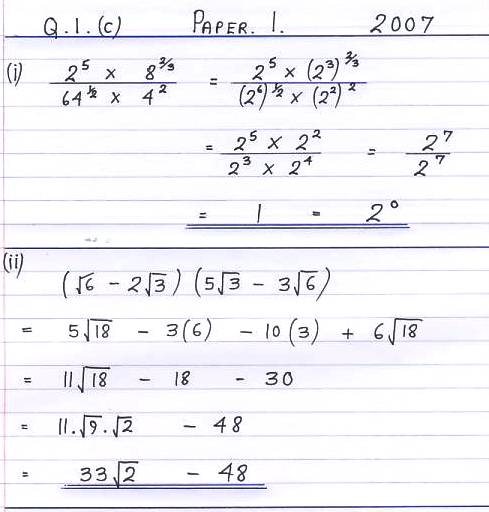 Q.1.(c) PAPER. 1. 2007
(i) 2⁵ × 8^(2/3) / 64^(1/2) × 4² = 2⁵ × (2³)^(2/3) / (2⁶)^(1/2) × (2²)²
= 2⁵ × 2² / 2³ × 2⁴ = 2⁷ / 2⁷
= 1 = 2⁰
(ii)
(√6 - 2√3) (5√3 - 3√6)
= 5√18 - 3(6) - 10(3) + 6√18
= 11√18 - 18 - 30
= 11.√9.√2 - 48
= 33√2 - 48